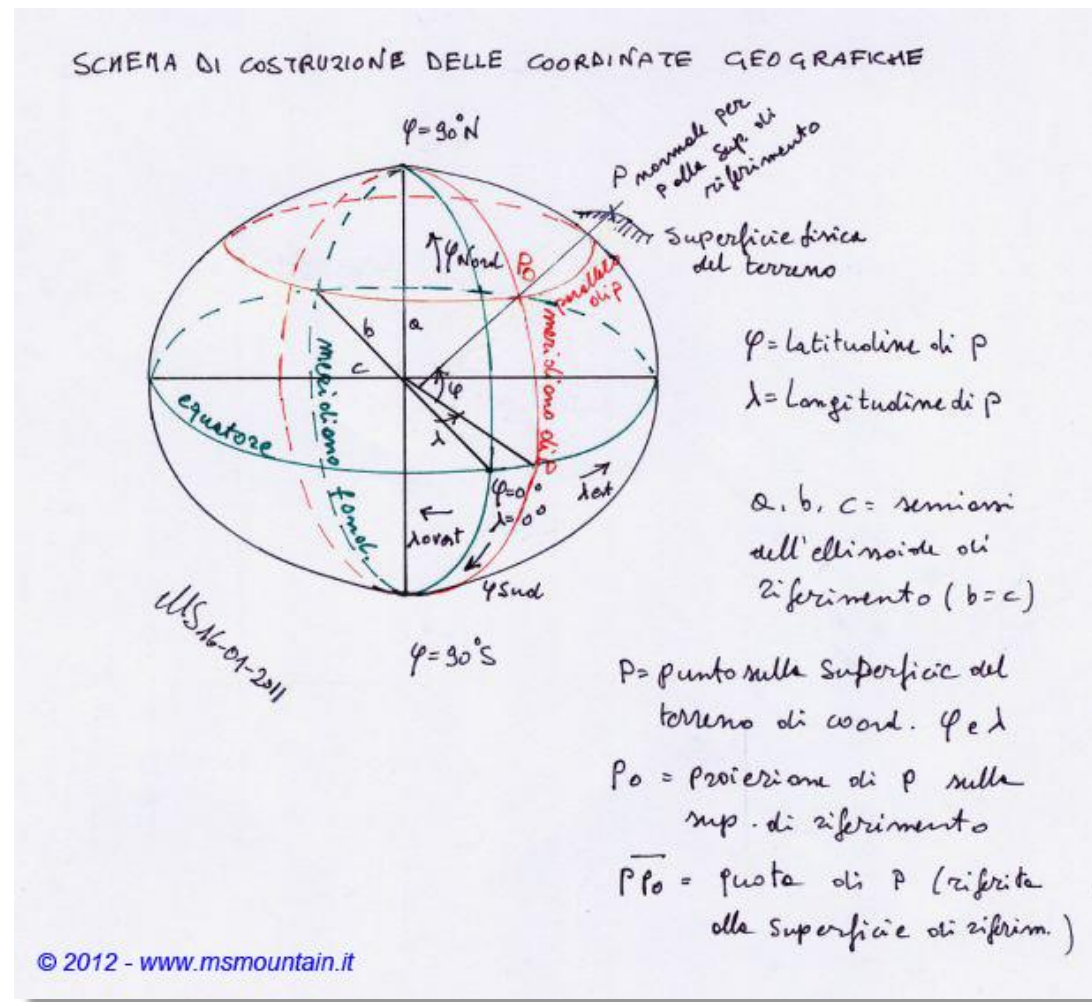 SCHEMA DI COSTRUZIONE DELLE COORDINATE GEOGRAFICHE
φ=90°N
P normale per
P alla Sup. di
riferimento
Superficie fisica
del terreno
φNord
P₀
parallelo
di P
b
a
c
φ
λ
meridiano fond.
meridiano di P
equatore
φ=0°
λ=0°
λest
λovest
φSud
φ=90°S
MS 16-01-2011
φ=Latitudine di P
λ=Longitudine di P
a, b, c = semiassi
dell'ellissoide di
riferimento (b=c)
P= punto sulla Superficie del
terreno di coord. φ e λ
P₀ = proiezione di P sulla
sup. di riferimento
PP₀ = quota di P (riferita
alla Superficie di riferim.)
© 2012 - www.msmountain.it